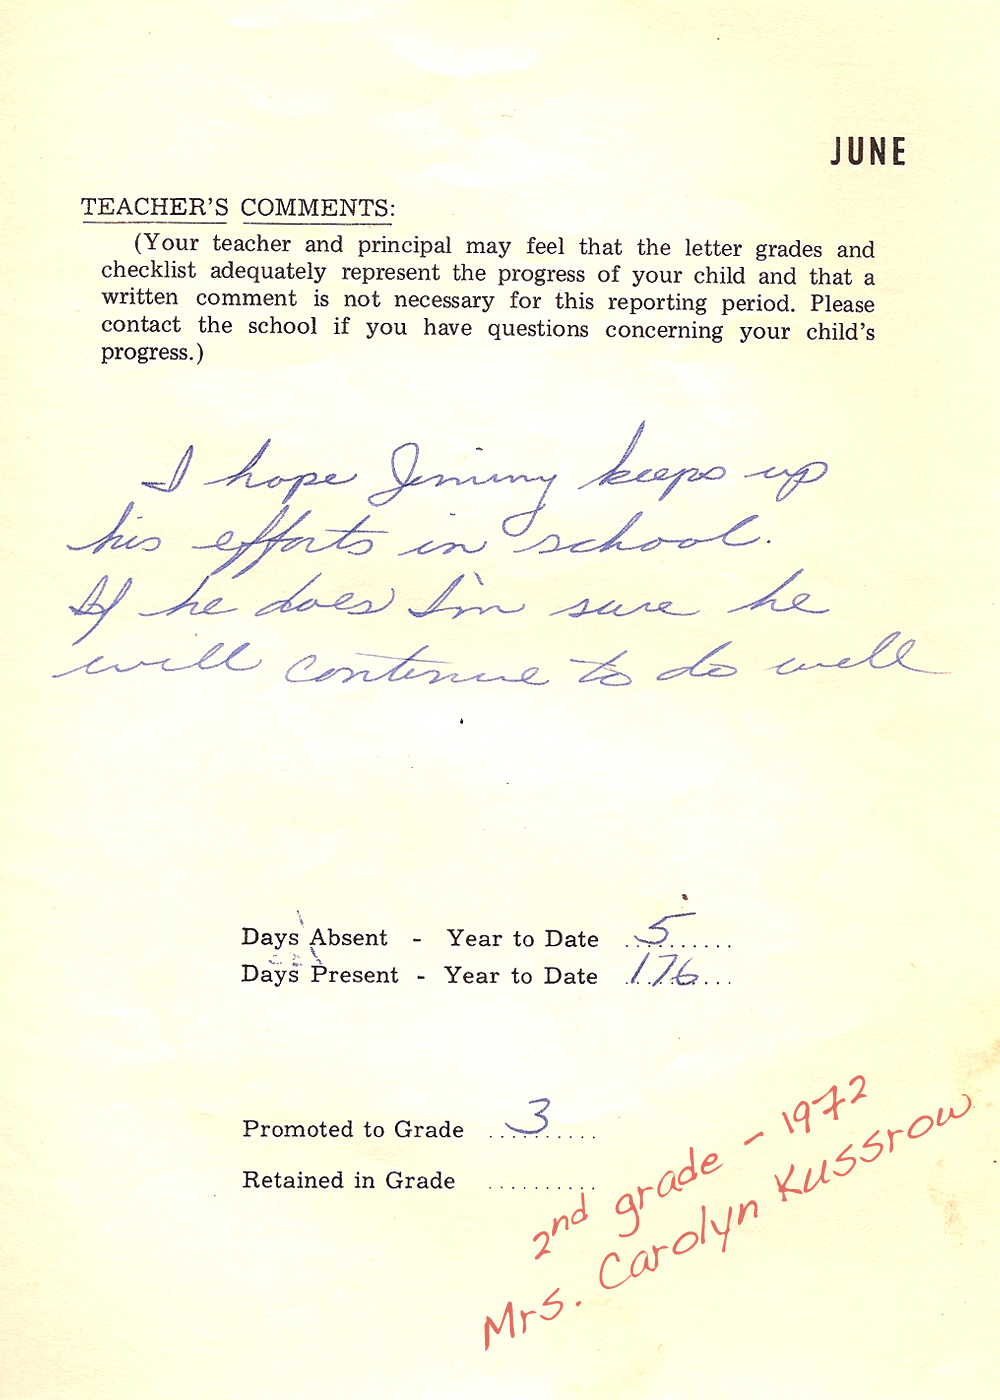 JUNE
TEACHER'S COMMENTS:
(Your teacher and principal may feel that the letter grades and
checklist adequately represent the progress of your child and that a
written comment is not necessary for this reporting period. Please
contact the school if you have questions concerning your child's
progress.)
I hope Jimmy keeps up
his efforts in school.
If he does I'm sure he
will continue to do well
Days Absent - Year to Date ..5.......
Days Present - Year to Date ..176...
Promoted to Grade ..3.......
Retained in Grade ..........
2nd grade - 1972
Mrs. Carolyn Kussrow